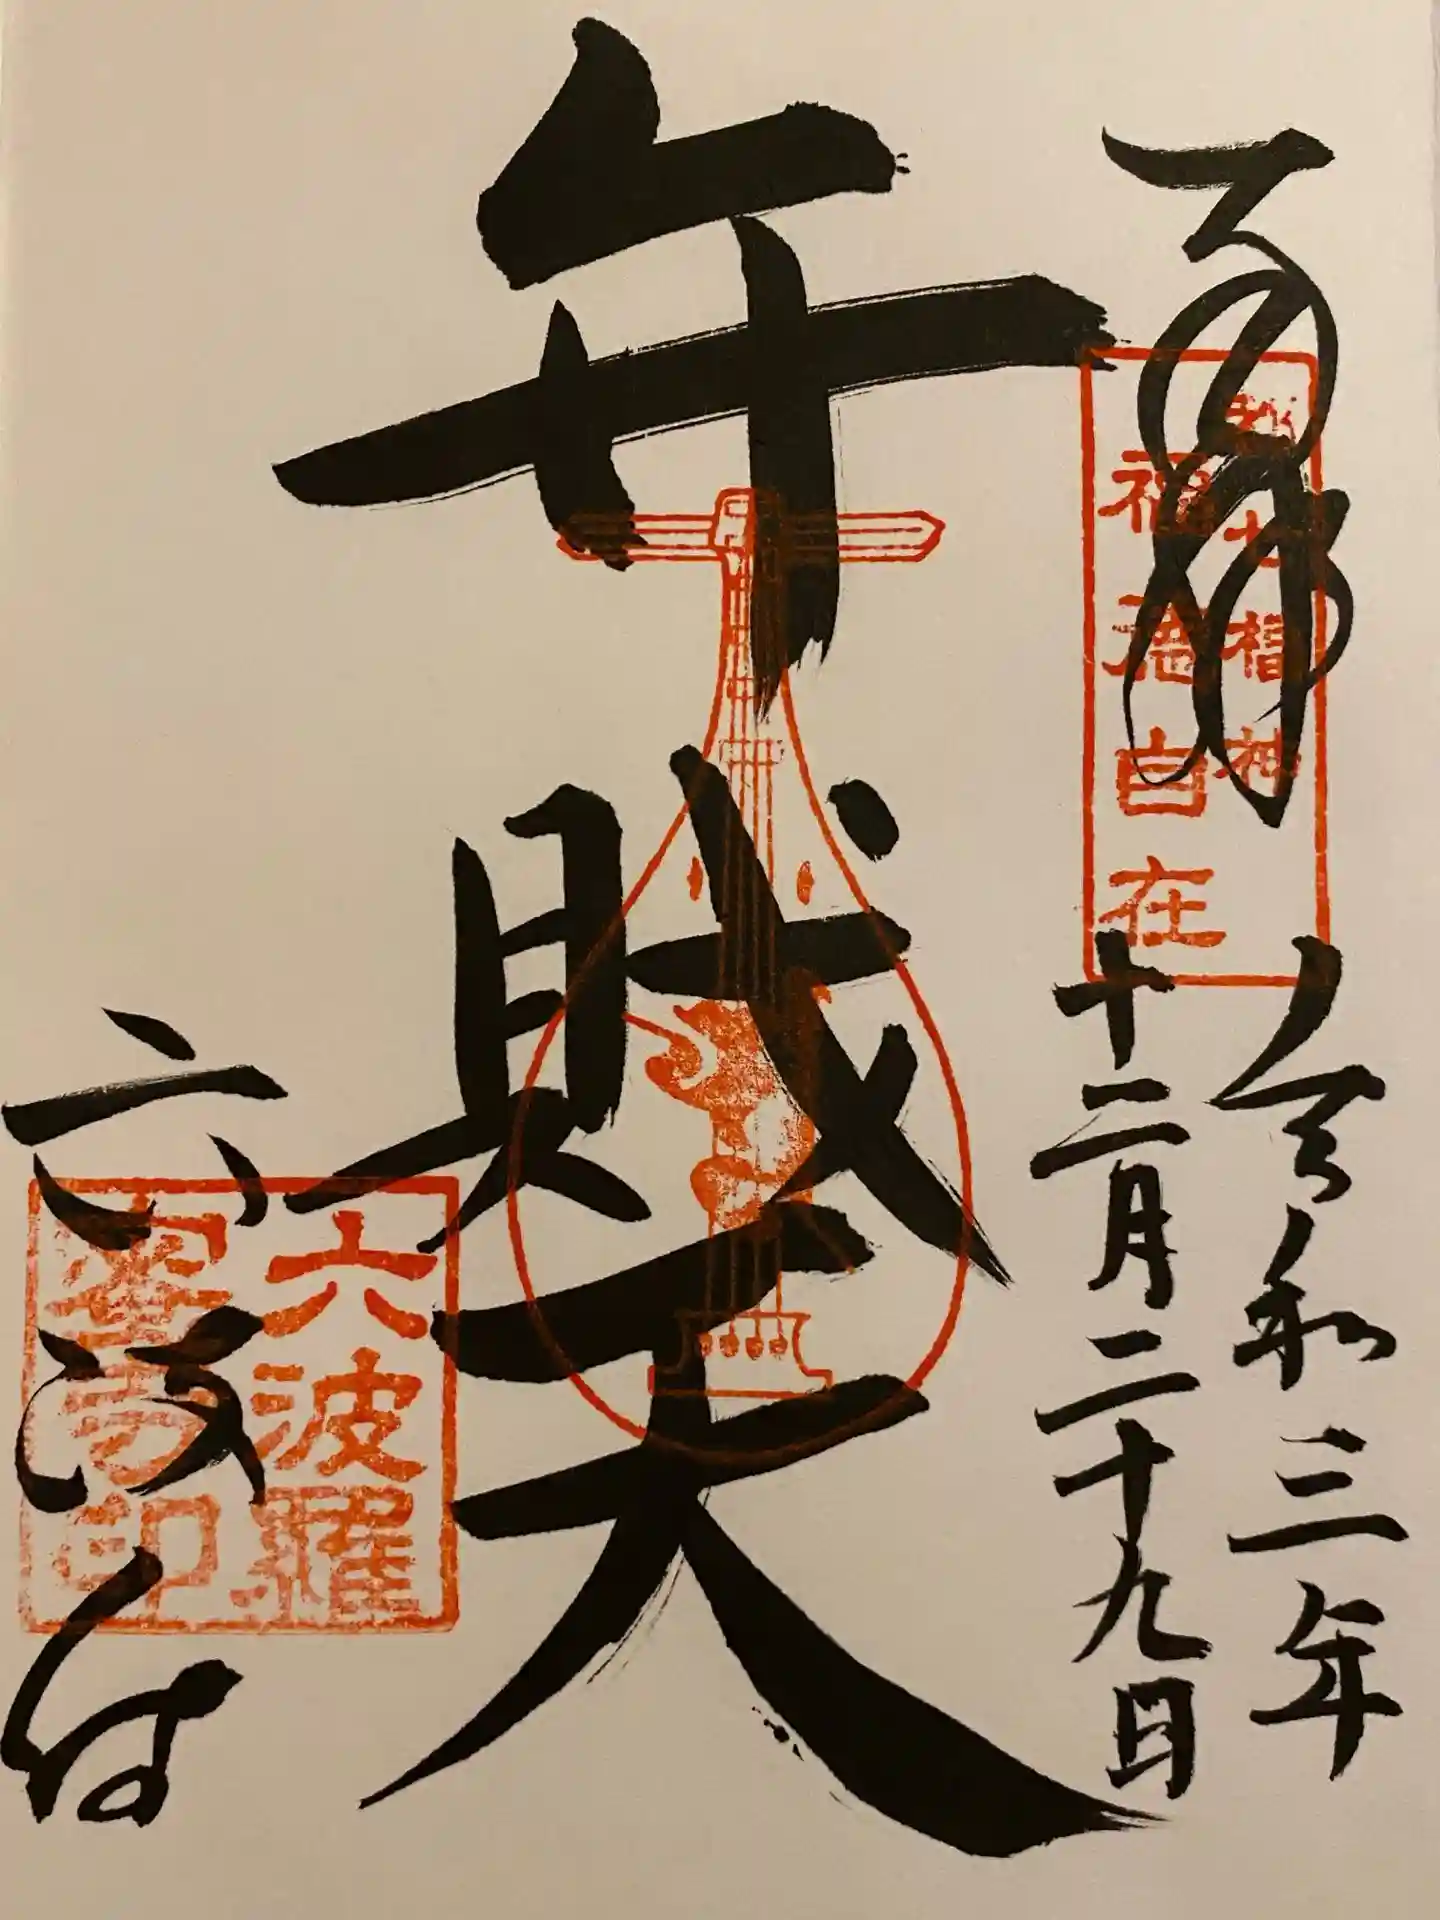 奉拝
都七福神
福徳自在
令和三年
十二月二十九日
弁財天
六波
六波羅
蜜寺印